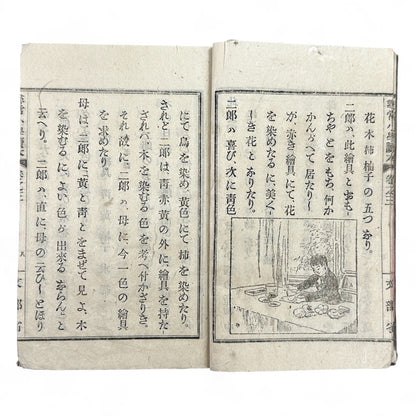 尋常小學讀本 巻之三
花木持柚子の五つなり。
二郎ハ、此繪具とおも
ちやとをもち、何か
かんがへて居たりし
が、赤き繪具にて花
を染めたるに、美く
しき花となりたり。
二郎ハ喜び、次に青色
文部省
にて鳥を染め、黄色にて柿を染めたり。
されど、二郎ハ、青赤黄の外に繪具を持た
ざれバ、木を染むる色を考へ付かざりき。
それ故に、二郎ハ、母に、今一色の繪具
を求めたり。
母ハ、二郎に、黄と青とをまぜて見よ、木
を染むるに、よい色が出來るならんと
云へり。二郎ハ、直に、母の云ひしとほり
尋常小學讀本 巻之三
五
文部省